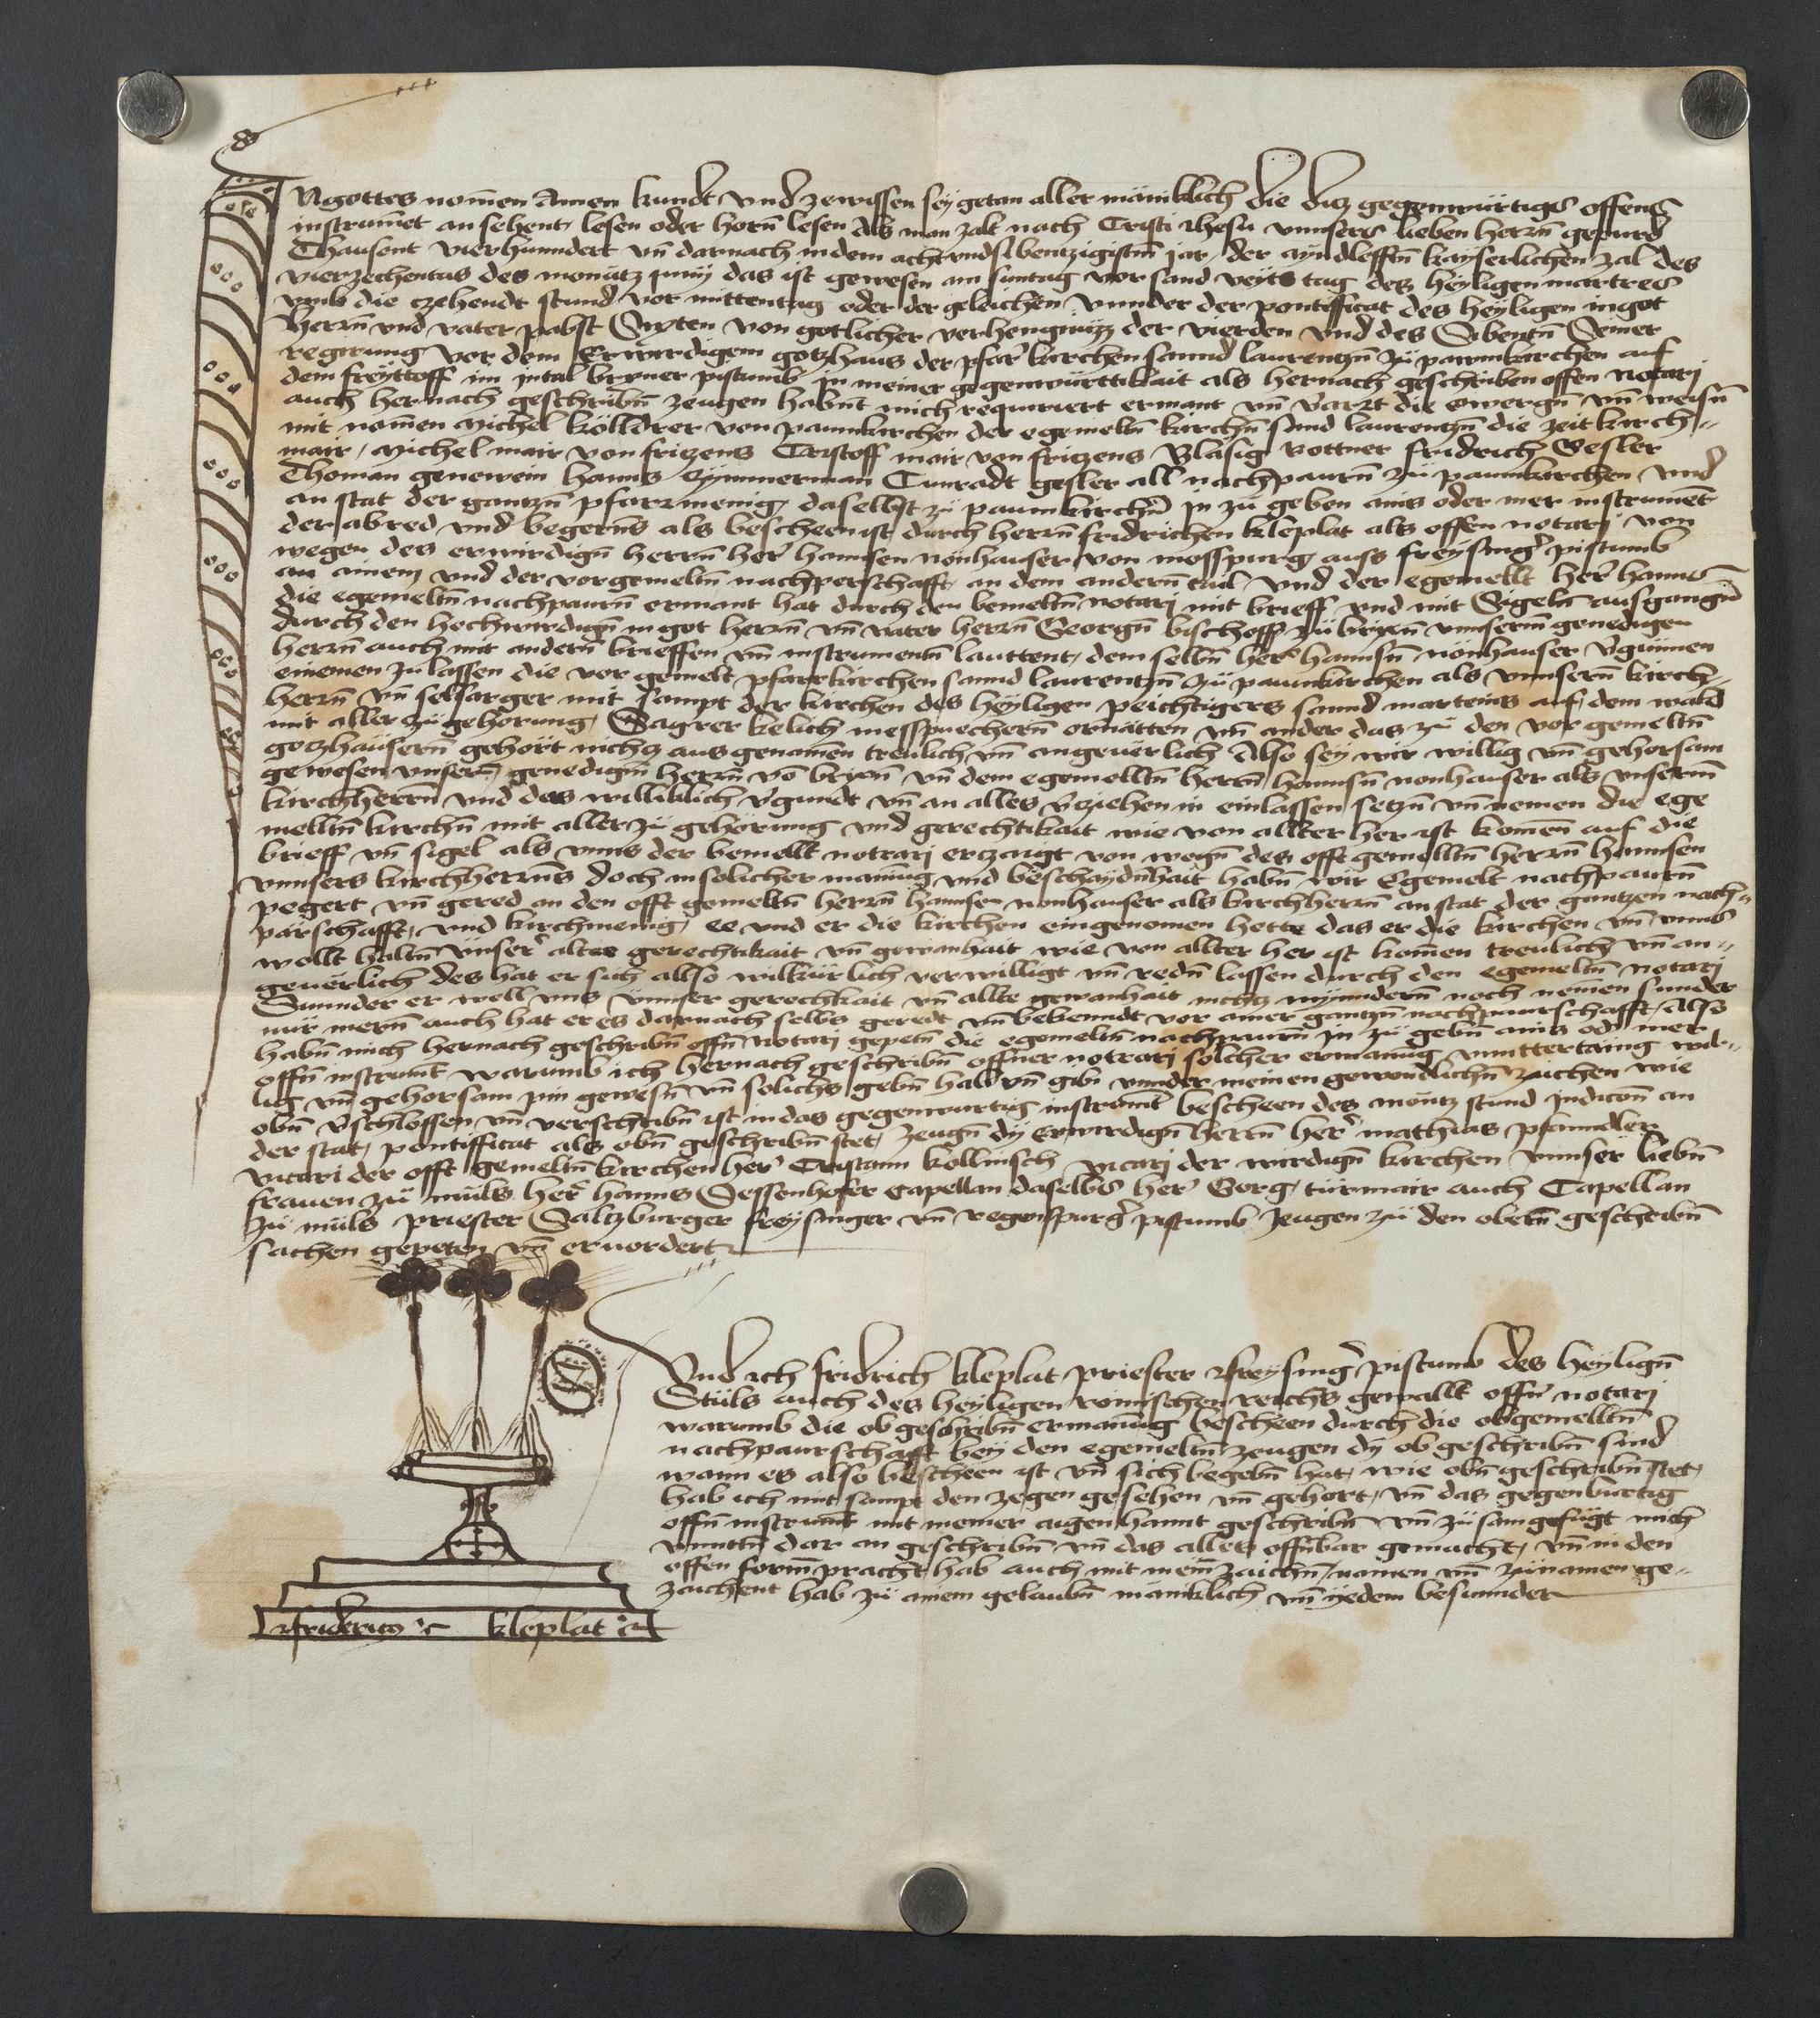 In gottes nomen Amen kundt vnd zewissen sey getan aller mäniklich die ditz gegenwürtigs offens
instrumēt an sehent, lesen oder hörn lesen Als man zalt nach Cristi Jhesu vnnsers lieben herrn gepurd
Thausent vierhunndert vn̄ darnach in dem acht vnd sibentzigistn̄ jar, der ayndlefftn̄ kayserlichen zal des
vierzechentas des monatz junij das ist gewesen am suntag vor sand veyts tag des heyligen martres
vmb die czehendt stund vor mittentag oder der geleichen vnnder der pontifficat des heyligen in got
Herrn vnd vater pabst Sixten von gotlicher verhengnuzz der vierden vnd des Sibentn̄ Seiner
regirung vor dem Erwirdigem gotzhaus der pfar kirchen sannd laurentzn̄ zu pawmkirchen auf
dem freyttoff im intal brixner pistumb In meiner gegenwürttikait als hernach geschriben offen notarj
auch hernach geschribn̄ zeugen habn̄t mich requiriert ermant vn̄ die vn̄ weisn̄
mit nomen Michel kölldrer von paumkirchen der egemeltn̄ kirchn̄ sand laurentzn̄ die zeit kirch-
mair, Michel mair von fritzens Cristoff mair von fritzens Blasig Rottner fridrich Gesler
Thoman genewein Hanns Zymmerman Cunradt gesler all nachpaurn̄ zu paumkirchen vnd
an stat der gantzn̄ pfarrmenig, daselbst zu paumkirchn̄ in zu geben ains oder mer instrumēt
der abred vnd begerns als bescheen ist durch herrn fridrichen kleplat als offen notarj von
wegen des erwirdign̄ herrn her hannsen nonhauser von mosspurg auss freysinger pistumb
an ainem vnd der vorgemeltn̄ nachperschafft, an dem andern tail, vnd der egemellt her hanns
die egemeltn̄ nachpaurn̄ ermant hat durch den bemeltn̄ notarj mit brieff vnd mit Sigeln̄ ausgangn̄
durch den hochwirdign̄ in got herrn vn̄ vater herrn Georgn̄ bischoff zu brixn̄ vnnserm genedigen
herrn auch mit andern brieffen vn̄ instrumentn̄ lauttent, dem selbn̄ her hannsn̄ nonhauser v̄günnen
einemen zu lassen die vor gemelt pfarrkirchen sannd laurentzn̄ zu paumkirchen als vnnsern kirch-
herrn vn̄ selsarger mit sampt der kirchen des heyligen peichtigers sannd marteins auf dem wald
mit aller zu gehorung, Sagrer kelich messpuechern ornatten vn̄ ander das zu den vor gemeltn̄
gotzhausern gehört nichtz aus genomen treulich vn̄ angeuerlich Also sey wir willig vn̄ gehorsam
gewesen vnserm genedign̄ herrn vō brixn̄ vn̄ dem egemelltn̄ herrn hannsn̄ nonhauser als vnserm
kirchherrn vnd das williklich v̄gundt vn̄ an alles v̄ziehen in einlassen setzn̄ vn̄ nemen die ege
melltn̄ kirchn̄ mit aller zu gehörung vnd gerechtikait wie von allter her ist komen auf die
brieff vn̄ sigel als vnns der bemellt notrarj ertzaigt von wegn̄ des offt gemelltn̄ herrn hannsen
vnnsers kirchherrns doch in solicher mainūg vnd beschaydn̄hait habn̄ wir Egemelt nachpaurn̄
pegert vn̄ gered an den offt gemeltn̄ herrn hannsn nonhauser als kirchherrn an stat der gantzen nach-
parschafft, vnd kirchmenig, ee vnd er die kirchen eingenomen hette das er die kirchen vn̄ vnns
wollt haltn̄ vnser alter gerechtikait vn̄ gewanhait wie von allter her ist komen treulich vn̄ an-
geuerlich des hat er sich allso wilkürlich verwilligt vn̄ redn̄ lassen durch den egemeltn̄ notarj
Sunnder er well vns vnnser gerechkait vn̄ allte gewanhait nichtz mynndern noch nemen sunder
nur mern auch hat er es darnach selbs geredt vn̄ bekenndt vor ainer gantzn̄ nachpaurschafft, Also
habn̄ mich hernach geschribn̄ offn̄ notarj gepetn̄ die egemeltn̄ nachpaurn̄ in zu gebn̄ ains od mer
offn̄ instrumēt warumb ich hernach geschribn̄ offner notrarj solcher ermanūg wil-
lig vn̄ gehorsam pin gewesn̄ vn̄ solichs gebn̄ hab vn̄ gib vnnder meinen gewondlichn̄ zaichen wie
obn̄ v̄schlossen vn̄ verschribn̄ ist in das gegenwurtig instrumēt bescheen des monatz stund jndicōn an
der stat, pontifficat als obn̄ geschribn̄ stet, zeugn̄ dy Erwirdign̄ herrn her mathias pfanndler
vicari der offt gemeltn̄ kirchen her Cristann kollnisch vicarj der wirdign̄ kirchen vnnser liebn̄
frauen zu müls her hanns Sessenhofer Capellan daselbs her Gorg, türmair auch Capellan
zu müls priester Saltzburger freysinger vn̄ regenspurger pistumb zeugen zu den obern̄ geschribn̄
sachen gepeten vn̄ eruordert
Vnd ich fridrich kleplat priester freysinger pistumb des heylign̄
Stuls auch des heyligen römischen reichs gewallt offn̄ notarj
warumb die ob geschribn̄ ermanūg bescheen durch die obgemelltn̄
nachpaurschafft bey den egemeltn̄ zeugen dy ob geschribn̄ sind
wann es also bescheen ist vn̄ sich begebn̄ hat, wie obn̄ geschribn̄ stet,
hab ich mit sampt den zegen gesehen vn̄ gehort, vn̄ das gegenburtig
offn̄ instrumt mit meiner aigen hannt geschribn̄ vn̄ zu sam gefügt mich
vnntn̄ dar an geschribn̄ vn̄ das alles offnbar gemacht, vn̄ in den
offen form pracht hab auch mit mein̄ zaichn̄, namen vn̄ zunamen ge-
zaichent hab zu ainem gelaubn̄ mäniklich vn̄ yedem besunnder
S
fridericus kleplat